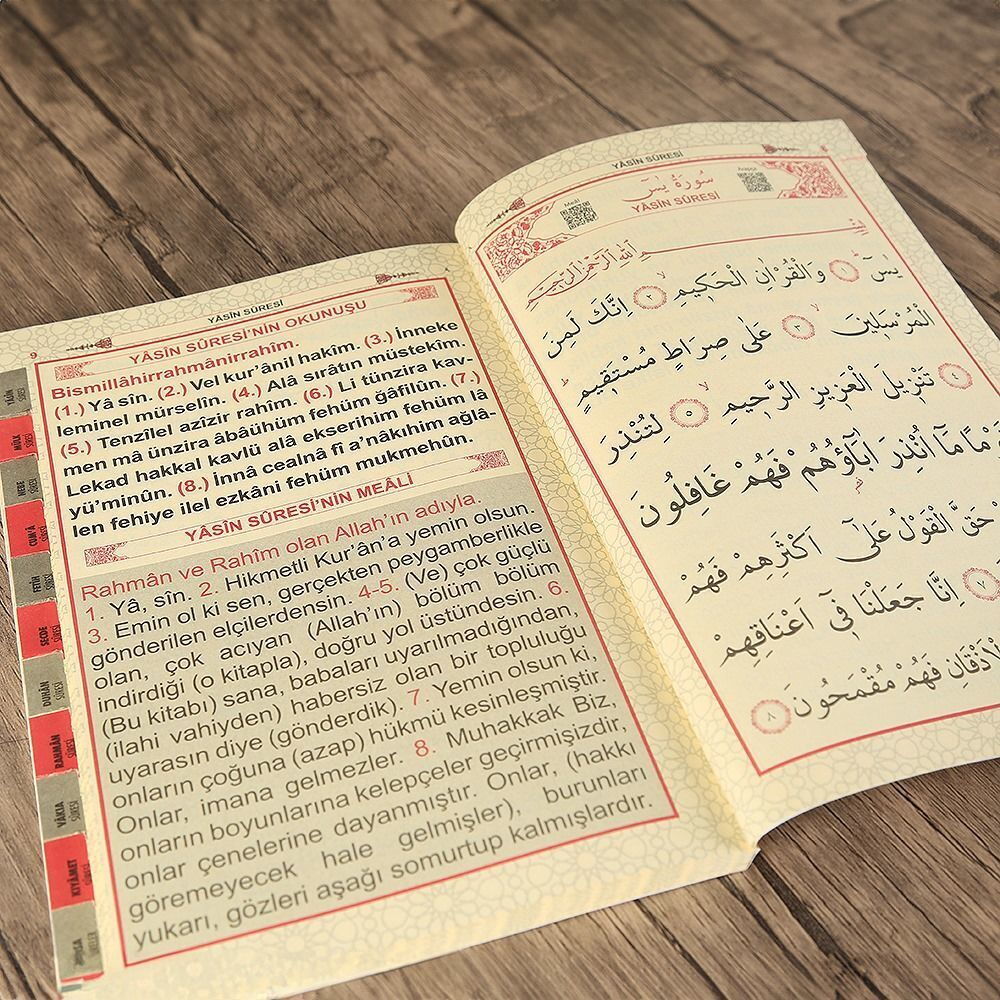 YÂSÎN SÛRESİ
9
YÂSÎN SÛRESİ'NİN OKUNUŞU
Bismillâhirrahmânirrahîm.
(1.) Yâ sîn. (2.) Vel kur'ânil hakîm. (3.) İnneke
leminel mürselîn. (4.) Alâ sırâtın müstekîm.
(5.) Tenzîlel azîzir rahîm. (6.) Li tünzira kav-
men mâ ünzira âbâühüm fehüm ğâfilûn. (7.)
Lekad hakkal kavlü alâ ekserihim fehüm lâ
yü'minûn. (8.) İnnâ cealnâ fî a'nâkıhim ağlâ-
len fehiye ilel ezkâni fehüm mukmehûn.
YÂSÎN SÛRESİ'NİN MEÂLİ
Rahmân ve Rahîm olan Allah'ın adıyla.
1. Yâ, sîn. 2. Hikmetli Kur'ân'a yemin olsun.
3. Emin ol ki sen, gerçekten peygamberlikle
gönderilen elçilerdensin. 4-5. (Ve) çok güçlü
olan, çok acıyan (Allah'ın) bölüm bölüm
indirdiği (o kitapla), doğru yol üstündesin. 6.
(Bu kitabı) sana, babaları uyarılmadığından,
(ilahi vahiyden) habersiz olan bir topluluğu
uyarasın diye (gönderdik). 7. Yemin olsun ki,
onların çoğuna (azap) hükmü kesinleşmiştir.
Onlar, imana gelmezler. 8. Muhakkak Biz,
onların boyunlarına kelepçeler geçirmişizdir,
onlar çenelerine dayanmıştır. Onlar, (hakkı
göremeyecek hale gelmişler), burunları
yukarı, gözleri aşağı somurtup kalmışlardır.
YÂSİN SÛRESİ
MÜLK SÛRESİ
NEBE SÛRESİ
CUM'A SÛRESİ
FETİH SÛRESİ
SECDE SÛRESİ
DUHÂN SÛRESİ
RAHMÂN SÛRESİ
VÂKIA SÛRESİ
KIYÂMET SÛRESİ
KISA SÛRELER
YÂSÎN SÛRESİ
8
Meâli
Arapça
سُورَةُ يٰسٓ
YÂSÎN SÛRESİ
بِسْمِ اللّٰهِ الرَّحْمٰنِ الرَّحِيمِ
يٰسٓ ١ وَالْقُرْاٰنِ الْحَكِيمِ ٢ اِنَّكَ لَمِنَ
الْمُرْسَلِينَ ٣ عَلٰى صِرَاطٍ مُسْتَقِيمٍ
تَنْزِيلَ الْعَزِيزِ الرَّحِيمِ ٥ لِتُنْذِرَ
مَا اُنْذِرَ اٰبَٓاؤُهُمْ فَهُمْ غَافِلُونَ
حَقَّ الْقَوْلُ عَلٰٓى اَكْثَرِهِمْ فَهُمْ
٧ اِنَّا جَعَلْنَا فٖٓي اَعْنَاقِهِمْ
الْاَذْقَانِ فَهُمْ مُقْمَحُونَ ٨